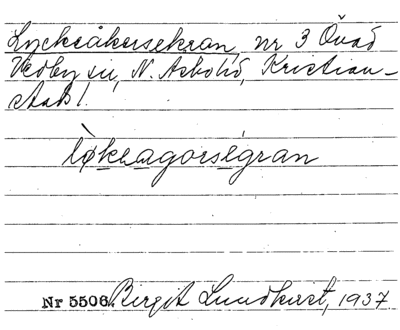 Lyckeåkersekran, nr 3 Övad
Vedby sn, N. Åsbo hd, Kristian-
stads l.
lø̀keagorségran
Nr 5506 Birgit Lundkvist, 1937